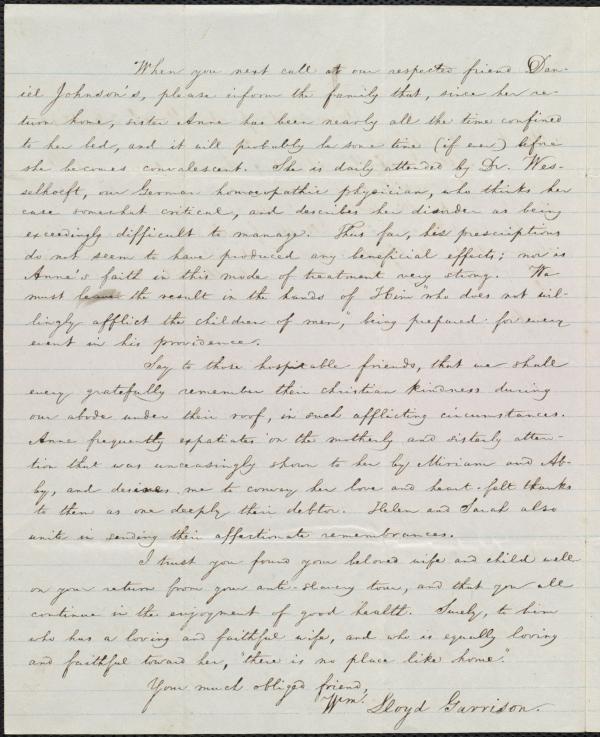 When you next call at our respected friend Dan-
iel Johnson's, please inform the family that, since her re-
turn home, sister Anne has been nearly all the time confined
to her bed, and it will probably be some time (if ever) before
she becomes convalescent. She is daily attended by Dr. Wes-
selhoeft, our German homœopathic physician, who thinks her
case somewhat critical, and describes her disorder as being
exceedingly difficult to manage. Thus far, his prescriptions
do not seem to have produced any beneficial effects; nor is
Anne's faith in this mode of treatment very strong. We
must leave the result in the hands of Him "who does not wil-
lingly afflict the children of men," being prepared for every
event in his providence.
Say to those hospitable friends, that we shall
every gratefully remember their christian kindness during
our abode under their roof, in such afflicting circumstances.
Anne frequently expatiates on the motherly and sisterly atten-
tion that was unceasingly shown to her by Miriam and Ab-
by, and desires me to convey her love and heart-felt thanks
to them as one deeply their debtor. Helen and Sarah also
unite in sending their affectionate remembrances.
I trust you found your beloved wife and child well
on your return from your anti-slavery tour, and that you all
continue in the enjoyment of good health. Surely, to him
who has a loving and faithful wife, and who is equally loving
and faithful toward her, "there is no place like home".
Your much obliged friend,
Wm. Lloyd Garrison.